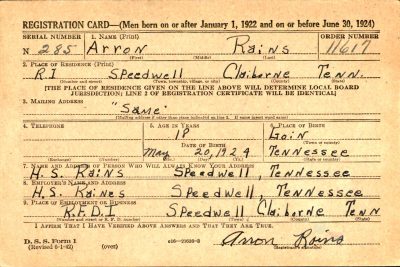 REGISTRATION CARD—(Men born on or after January 1, 1922 and on or before June 30, 1924)
SERIAL NUMBER 1. NAME (Print) ORDER NUMBER
N 285 Arron Rains 11617
(First) (Middle) (Last)
2. PLACE OF RESIDENCE (Print)
R.I Speedwell Claiborne Tenn.
(Number and street) (Town, township, village, or city) (County) (State)
[THE PLACE OF RESIDENCE GIVEN ON THE LINE ABOVE WILL DETERMINE LOCAL BOARD
JURISDICTION; LINE 2 OF REGISTRATION CERTIFICATE WILL BE IDENTICAL]
3. MAILING ADDRESS
"Same"
(Mailing address if other than place indicated on line 2. If same insert word same)
4. TELEPHONE 5. AGE IN YEARS 6. PLACE OF BIRTH
18
DATE OF BIRTH (Town or county)
May 20, 1924 Tennessee
(Exchange) (Number) (Mo.) (Day) (Yr.) (State or country)
7. NAME AND ADDRESS OF PERSON WHO WILL ALWAYS KNOW YOUR ADDRESS
H. S. Rains Speedwell, Tennessee
8. EMPLOYER'S NAME AND ADDRESS
H. S. Raines Speedwell, Tennessee
9. PLACE OF EMPLOYMENT OR BUSINESS
R.F.D.I Speedwell Claiborne Tenn
(Number and street or R. F. D. number) (Town) (County) (State)
I AFFIRM THAT I HAVE VERIFIED ABOVE ANSWERS AND THAT THEY ARE TRUE.
D. S. S. Form 1
(Revised 6-1-42) (over) Arron Rains
(Registrant's signature)